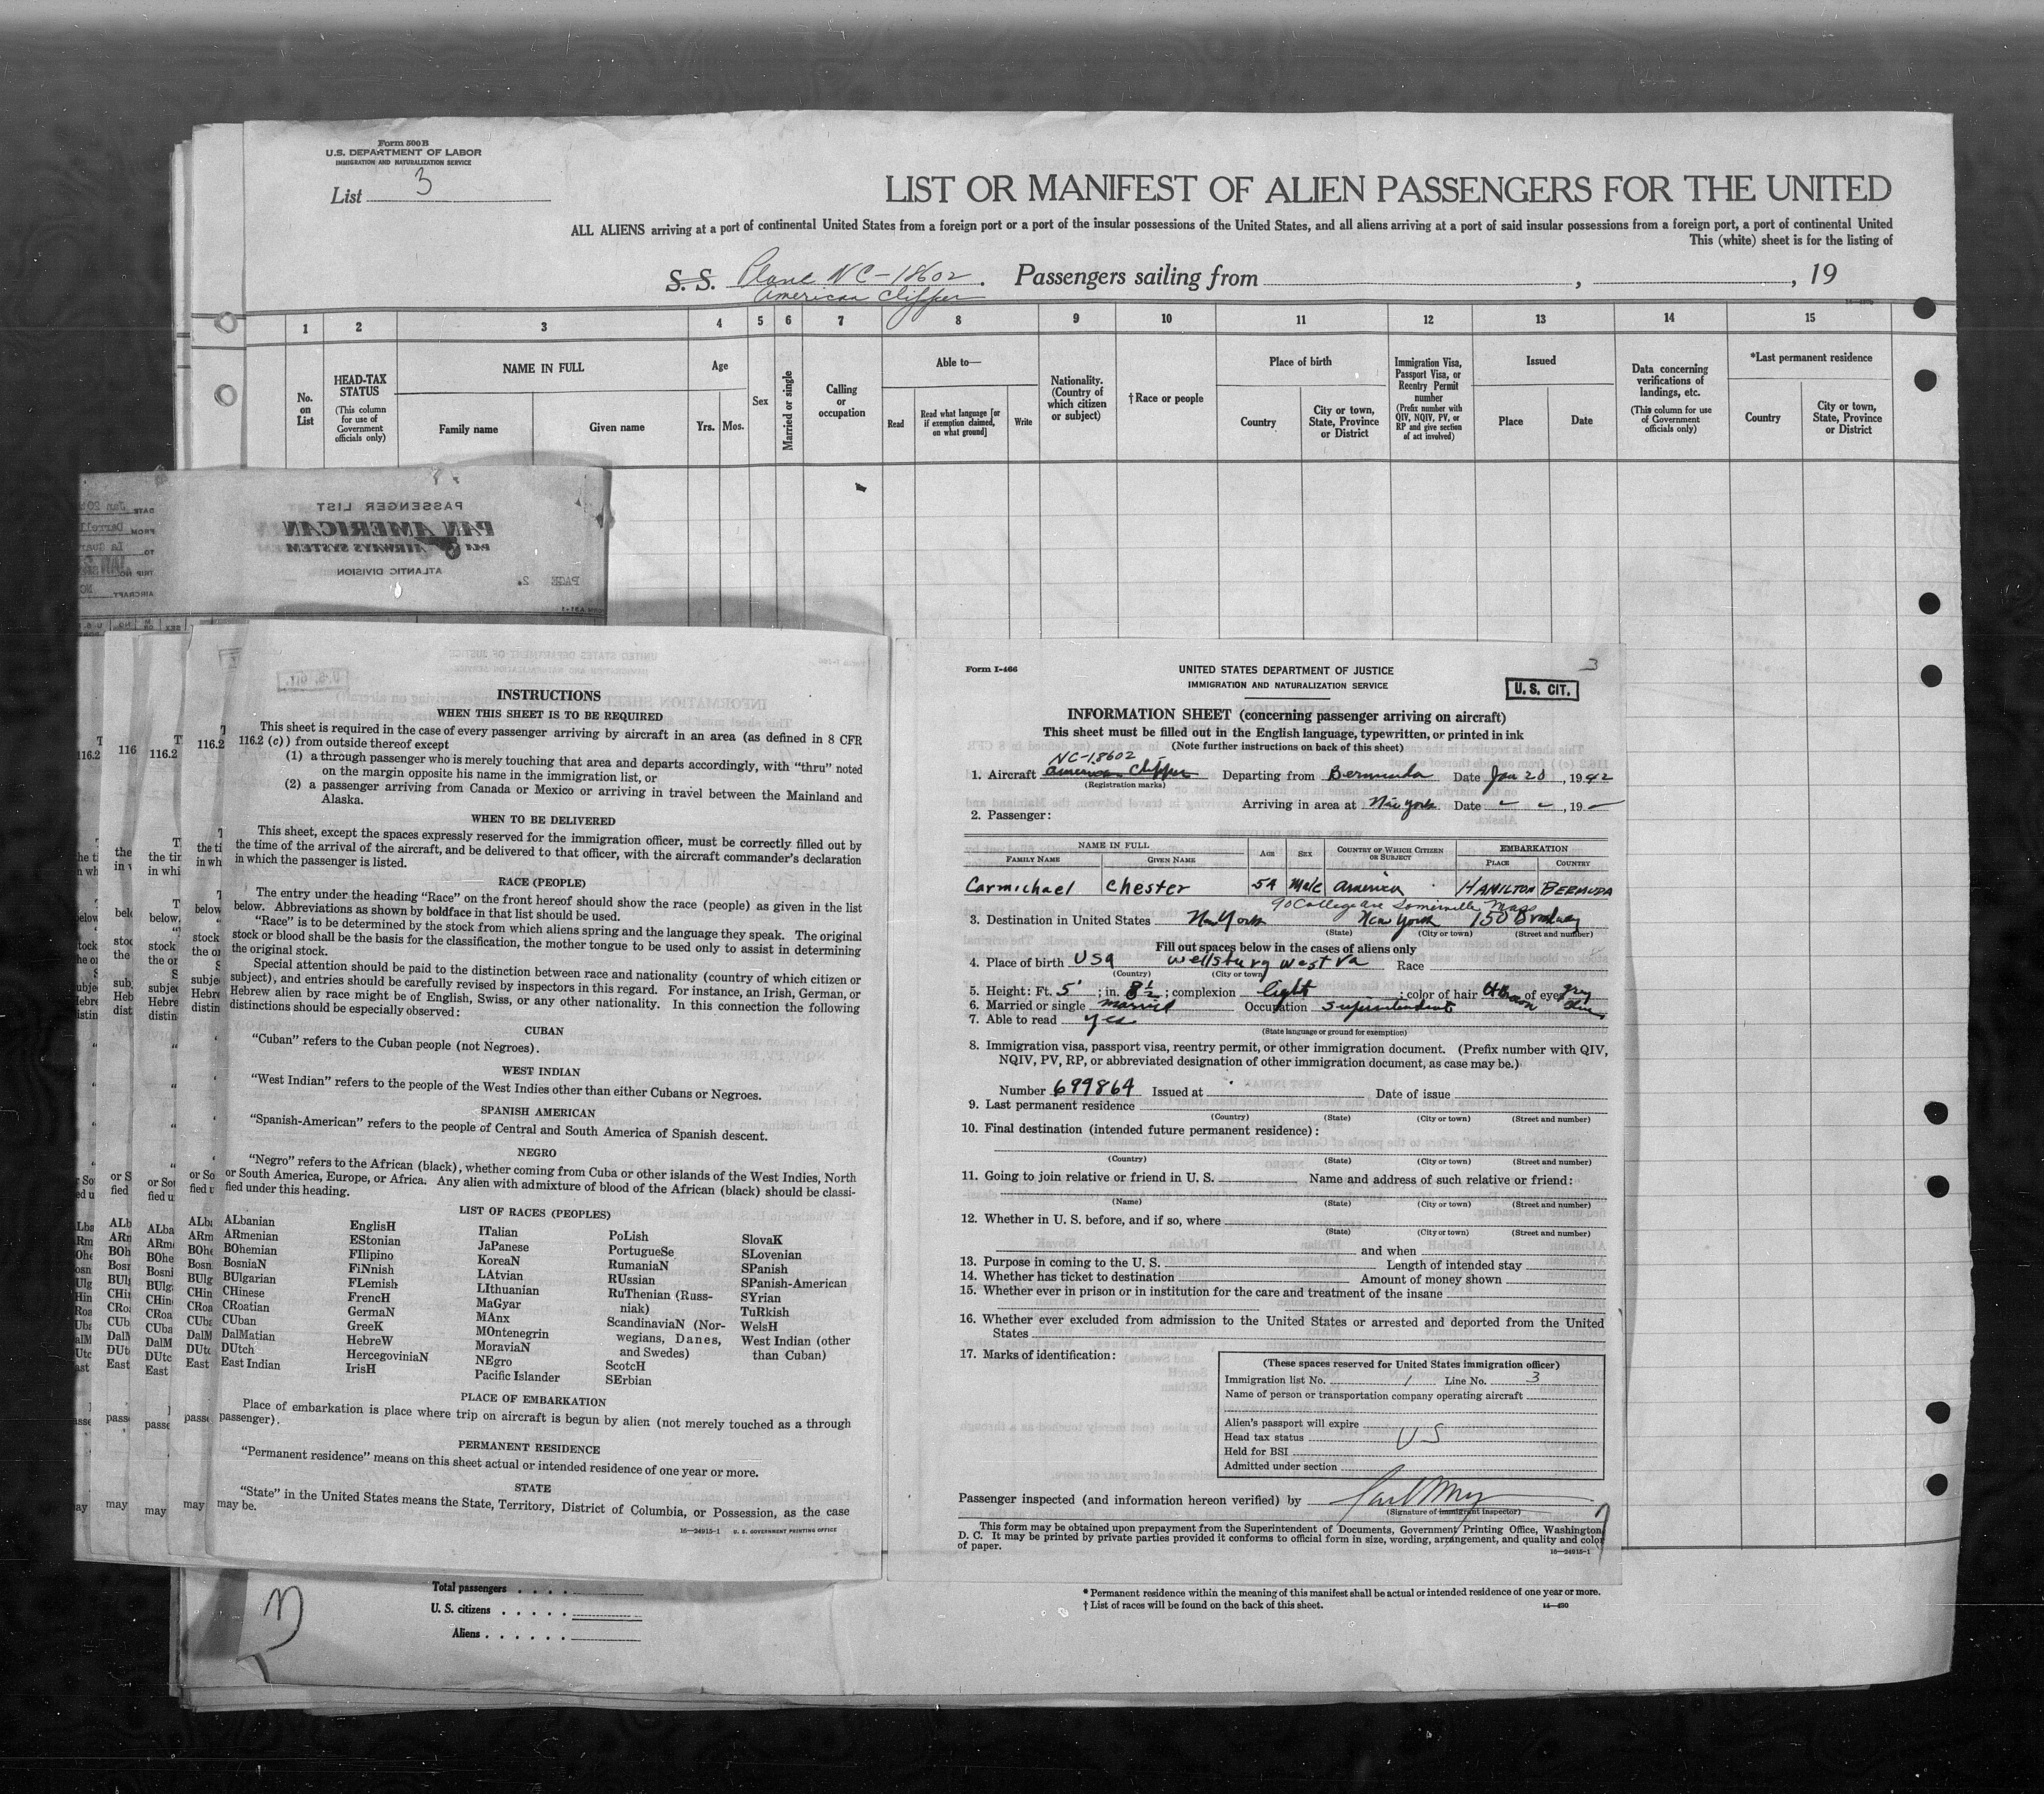 Form 500 B
U.S. DEPARTMENT OF LABOR
IMMIGRATION AND NATURALIZATION SERVICE
List 3
LIST OR MANIFEST OF ALIEN PASSENGERS FOR THE UNITED
ALL ALIENS arriving at a port of continental United States from a foreign port or a port of the insular possessions of the United States, and all aliens arriving at a port of said insular possessions from a foreign port, a port of continental United
This (white) sheet is for the listing of
S. S. Plane NC-18602. Passengers sailing from , , 19
American Clipper
1 2 3 4 5 6 7 8 9 10 11 12 13 14 15
No. on List
HEAD-TAX STATUS
(This column for use of Government officials only)
NAME IN FULL
Family name
Given name
Age
Yrs. Mos.
Sex
Married or single
Calling or occupation
Able to—
Read
Read what language [or if exemption claimed, on what ground]
Write
Nationality. (Country of which citizen or subject)
†Race or people
Place of birth
Country
City or town, State, Province or District
Immigration Visa, Passport Visa, or Reentry Permit number
(Prefix number with QIV, NQIV, PV, or RP and give section of act involved)
Issued
Place
Date
Data concerning verifications of landings, etc.
(This column for use of Government officials only)
*Last permanent residence
Country
City or town, State, Province or District
PASSENGER LIST
PAN AMERICAN
AIRWAYS SYSTEM
ATLANTIC DIVISION
PAGE 2.
DATE Jan 20
FROM Darrell
TO La Guar
TRIP NO.
AIRCRAFT NC
INSTRUCTIONS
WHEN THIS SHEET IS TO BE REQUIRED
This sheet is required in the case of every passenger arriving by aircraft in an area (as defined in 8 CFR
116.2 (c)) from outside thereof except
(1) a through passenger who is merely touching that area and departs accordingly, with "thru" noted
on the margin opposite his name in the immigration list, or
(2) a passenger arriving from Canada or Mexico or arriving in travel between the Mainland and
Alaska.
WHEN TO BE DELIVERED
This sheet, except the spaces expressly reserved for the immigration officer, must be correctly filled out by
the time of the arrival of the aircraft, and be delivered to that officer, with the aircraft commander's declaration
in which the passenger is listed.
RACE (PEOPLE)
The entry under the heading "Race" on the front hereof should show the race (people) as given in the list
below. Abbreviations as shown by boldface in that list should be used.
"Race" is to be determined by the stock from which aliens spring and the language they speak. The original
stock or blood shall be the basis for the classification, the mother tongue to be used only to assist in determining
the original stock.
Special attention should be paid to the distinction between race and nationality (country of which citizen or
subject), and entries should be carefully revised by inspectors in this regard. For instance, an Irish, German, or
Hebrew alien by race might be of English, Swiss, or any other nationality. In this connection the following
distinctions should be especially observed:
CUBAN
"Cuban" refers to the Cuban people (not Negroes).
WEST INDIAN
"West Indian" refers to the people of the West Indies other than either Cubans or Negroes.
SPANISH AMERICAN
"Spanish-American" refers to the people of Central and South America of Spanish descent.
NEGRO
"Negro" refers to the African (black), whether coming from Cuba or other islands of the West Indies, North
or South America, Europe, or Africa. Any alien with admixture of blood of the African (black) should be classi-
fied under this heading.
LIST OF RACES (PEOPLES)
ALbanian
ARmenian
BOhemian
BosniaN
BUlgarian
CHinese
CRoatian
CUban
DalMatian
DUtch
East Indian
EnglisH
EStonian
FIlipino
FiNnish
FLemish
FrencH
GermaN
GreeK
HebreW
HercegoviniaN
IrisH
ITalian
JaPanese
KoreaN
LAtvian
LIthuanian
MaGyar
MAnx
MOntenegrin
MoraviaN
NEgro
Pacific Islander
PoLish
PortugueSe
RumaniaN
RUssian
RuThenian (Russ-
niak)
ScandinaviaN (Nor-
wegians, Danes,
and Swedes)
ScotcH
SErbian
SlovaK
SLovenian
SPanish
SPanish-American
SYrian
TuRkish
WelsH
West Indian (other
than Cuban)
PLACE OF EMBARKATION
Place of embarkation is place where trip on aircraft is begun by alien (not merely touched as a through
passenger).
PERMANENT RESIDENCE
"Permanent residence" means on this sheet actual or intended residence of one year or more.
STATE
"State" in the United States means the State, Territory, District of Columbia, or Possession, as the case
may be.
16—24915-1 U. S. GOVERNMENT PRINTING OFFICE
Form I-466
UNITED STATES DEPARTMENT OF JUSTICE
IMMIGRATION AND NATURALIZATION SERVICE
3
U. S. CIT.
INFORMATION SHEET (concerning passenger arriving on aircraft)
This sheet must be filled out in the English language, typewritten, or printed in ink
(Note further instructions on back of this sheet)
NC-18602
1. Aircraft American Clipper Departing from Bermuda Date Jan 20, 1942
(Registration marks)
Arriving in area at New York Date " ", 19
2. Passenger:
NAME IN FULL
FAMILY NAME GIVEN NAME AGE SEX COUNTRY OF WHICH CITIZEN OR SUBJECT EMBARKATION PLACE COUNTRY
Carmichael Chester 54 Male America HAMILTON BERMUDA
90 College Ave Somerville Mass
3. Destination in United States New York New York 150 Broadway
(State) (City or town) (Street and number)
Fill out spaces below in the cases of aliens only
4. Place of birth USA Wellsburg West Va Race
(Country) (City or town)
5. Height: Ft. 5' ; in. 8½ ; complexion light ; color of hair Brown of eyes grey
6. Married or single married Occupation Superintendent
7. Able to read yes
(State language or ground for exemption)
8. Immigration visa, passport visa, reentry permit, or other immigration document. (Prefix number with QIV,
NQIV, PV, RP, or abbreviated designation of other immigration document, as case may be.)
Number 699864 Issued at Date of issue
9. Last permanent residence
(Country) (State) (City or town) (Street and number)
10. Final destination (intended future permanent residence):
(Country) (State) (City or town) (Street and number)
11. Going to join relative or friend in U. S. Name and address of such relative or friend:
(Name) (State) (City or town) (Street and number)
12. Whether in U. S. before, and if so, where
(State) (City or town) (Street and number)
and when
13. Purpose in coming to the U. S. Length of intended stay
14. Whether has ticket to destination Amount of money shown
15. Whether ever in prison or in institution for the care and treatment of the insane
16. Whether ever excluded from admission to the United States or arrested and deported from the United
States
17. Marks of identification:
(These spaces reserved for United States immigration officer)
Immigration list No. 1 Line No. 3
Name of person or transportation company operating aircraft
Alien's passport will expire
Head tax status US
Held for BSI
Admitted under section
Passenger inspected (and information hereon verified) by
(Signature of immigrant inspector)
This form may be obtained upon prepayment from the Superintendent of Documents, Government Printing Office, Washington,
D. C. It may be printed by private parties provided it conforms to official form in size, wording, arrangement, and quality and color
of paper.
16—24915-1
Total passengers
U. S. citizens
Aliens
* Permanent residence within the meaning of this manifest shall be actual or intended residence of one year or more.
† List of races will be found on the back of this sheet.
14—430